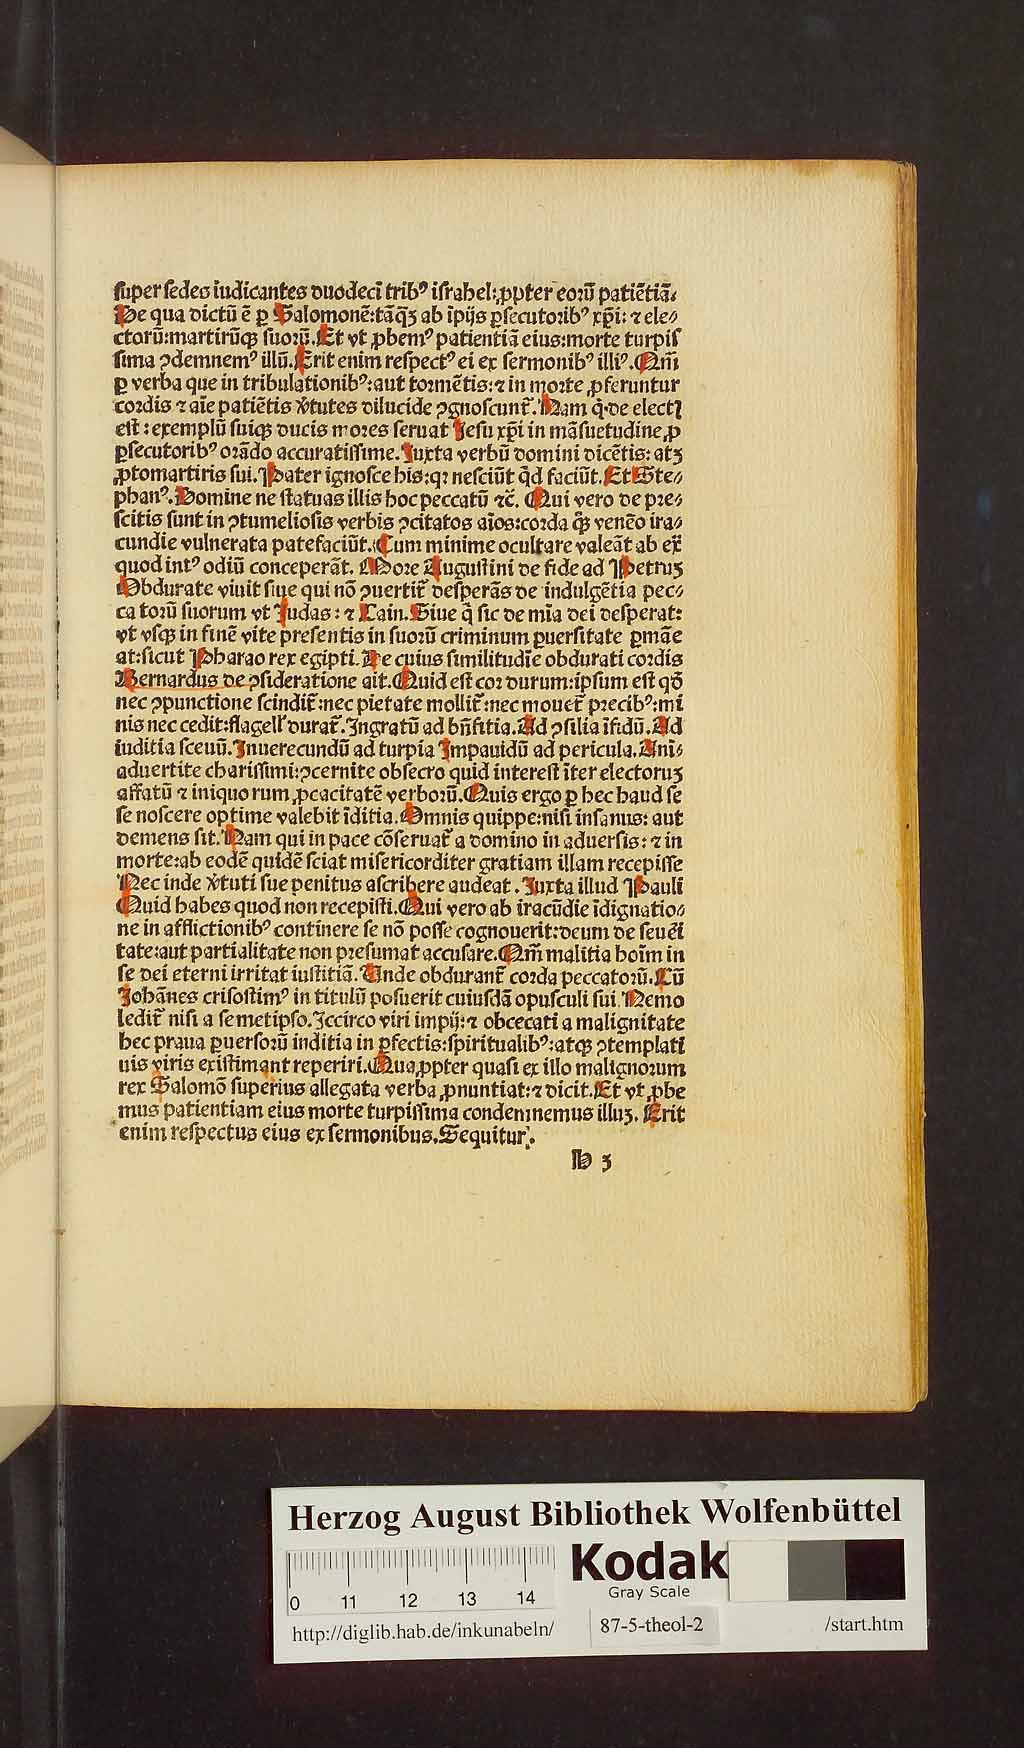 super sedes iudicantes duodeci tribꝰ israhel:ꝓpter eorū patiētiā.
De qua dictū ē ꝑ Salomonē:tāqꝫ ab īpijs ꝑsecutoribꝰ xp̄i: ⁊ ele⸗
ctorū:martirūqꝫ suorū. Et vt ꝓbemꝰ patientiā eius:morte turpis
sima ꝯdemnemꝰ illū. Erit enim respectꝰ ei ex sermonibꝰ illiꝰ. Qm̄
ꝑ verba que in tribulationibꝰ:aut tormētis:⁊ in morte ꝓferuntur
cordis ⁊ aīe patiētis v̄tutes dilucide ꝯgnoscunt̄. Nam q̄ de electꝭ
est : exemplū suiqꝫ ducis mores seruat Jesu xp̄i in māsuetudine ꝓ
ꝑsecutoribꝰ orādo accuratissime. Juxta verbū domini dicētis: atꝫ
ꝓtomartiris sui. Pater ignosce his:qꝛ nesciūt qd̄ faciūt. Et Ste⸗
phanꝰ. Domine ne statuas illis hoc peccatū ⁊c̄. Qui vero de pre⸗
scitis sunt in ꝯtumeliosis verbis ꝯcitatos aīos:corda q̄ꝫ venēo ira⸗
cundie vulnerata patefaciūt. Cum minime ocultare valeāt ab ex̄
quod intꝰ odiū conceperāt. More Augustini de fide ad Petruꝫ
Obdurate viuit siue qui nō ꝯuertit̄ desperās de indulgētia pec⸗
ca torū suorum vt Judas: ⁊ Cain. Siue q̄ sic de mīa dei desperat:
vt vsqꝫ in finē vite presentis in suorū criminum ꝑuersitate ꝑmāe
at:sicut Pharao rex egipti. De cuius similitudīe obdurati cordis
Bernardus de ꝯsideratione ait. Quid est cor durum:ipsum est qō
nec ꝯpunctione scindit̄:nec pietate mollit̄:nec mouet̄ precibꝰ:mi
nis nec cedit:flagell̄ durat̄. Ingratū ad bn̄fitia. Ad ꝯsilia īfidū. Ad
iuditia sceuū. Inuerecundū ad turpia Impauidū ad pericula. Ani⸗
aduertite charissimi:ꝯcernite obsecro quid interest īter electoruꝫ
affatū ⁊ iniquo rum ꝓcacitatē verborū. Quis ergo ꝑ hec haud se
se noscere optime valebit īditia. Omnis quippe:nisi insanus: aut
demens sit. Nam qui in pace cōseruat̄ a domino in aduersis: ⁊ in
morte:ab eodē quidē sciat misericorditer gratiam illam recepisse
Nec inde v̄tuti sue penitus ascribere audeat . Juxta illud Pauli
Quid habes quod non recepisti. Qui vero ab iracūdie īdignatio⸗
ne in afflictionibꝰ continere se nō posse cognouerit:deum de seuēi
tate:aut partialitate non presumat accusare. Qm̄ malitia hoīm in
se dei eterni irritat iustitiā. Unde obdurant̄ corda peccatorū. Cū
Johānes crisostimꝰ in titulū posuerit cuiusdā opusculi sui. Nemo
ledit̄ nisi a se metipso. Iccirco viri impij: ⁊ obcecati a malignitate
hec praua ꝑuersorū inditia in ꝑfectis:spiritualibꝰ:atqꝫ ꝯtemplati
uis viris existimant reperiri. Qua ꝓpter quasi ex illo malignorum
rex Salomō superius allegata verba ꝓnuntiat:⁊ dicit. Et vt ꝓbe
mus patientiam eius morte turpissima condemnemus illuꝫ. Erit
enim respectus eius ex sermonibus. Sequitur.
h 3
Herzog August Bibliothek Wolfenbüttel
Kodak
Gray Scale
0 11 12 13 14
http://diglib.hab.de/inkunabeln/ 87-5-theol-2 /start.htm